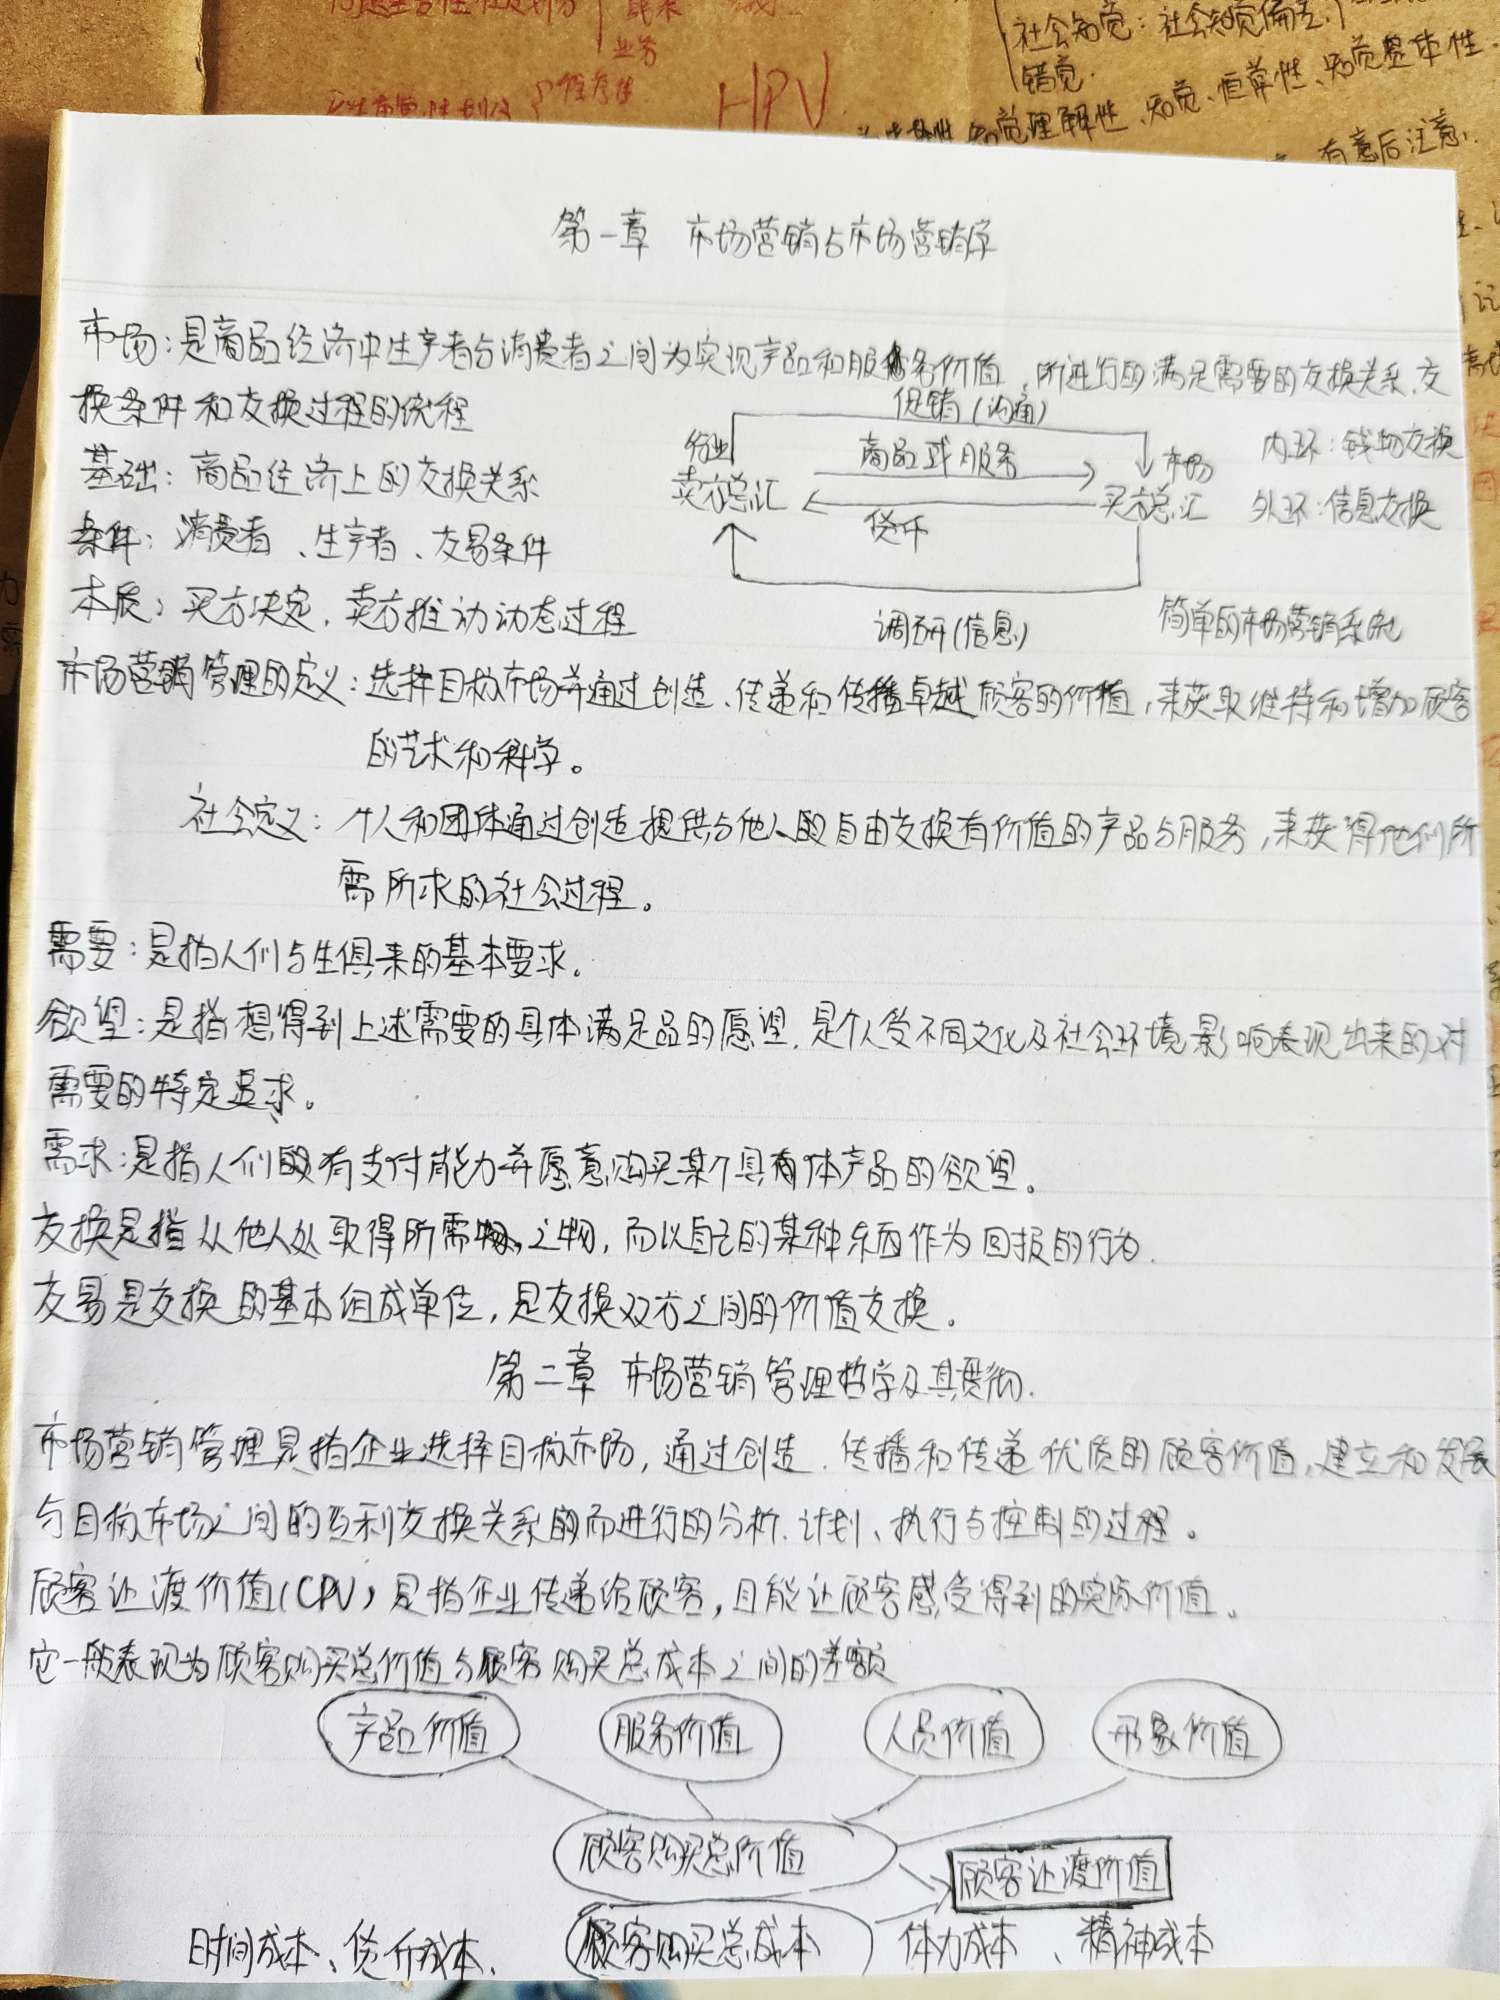 业务
HPV
社会知觉：社会知觉偏差、
错觉.
知觉理解性、知觉、恒常性、知觉整体性.
有意后注意.
第一章 市场营销与市场营销学
市场：是商品经济中生产者与消费者之间为实现产品和服务价值，所进行的满足需要的交换关系、交
换条件和交换过程的统程
促销（沟通）
行业
商品或服务
市场
内环：钱物交换
基础：商品经济上的交换关系
卖方总汇
买方总汇
外环：信息交换
货币
条件：消费者、生产者、交易条件
本质：买方决定，卖方推动动态过程
调研（信息）
简单的市场营销系统
市场营销管理的定义：选择目标市场并通过创造、传递和传播卓越顾客的价值，来获取维持和增加顾客
的艺术和科学。
社会定义：个人和团体通过创造提供与他人的自由交换有价值的产品与服务，来获得他们所
需所求的社会过程。
需要：是指人们与生俱来的基本要求.
欲望：是指想得到上述需要的具体满足品的愿望，是个人受不同文化及社会环境影响表现出来的对
需要的特定追求。
需求：是指人们的有支付能力并愿意购买某个具体产品的欲望。
交换是指从他人处取得所需之物，而以自己的某种东西作为回报的行为.
交易是交换的基本组成单位，是交换双方之间的价值交换。
第二章 市场营销管理哲学及其贯彻.
市场营销管理是指企业选择目标市场，通过创造、传播和传递优质的顾客价值，建立和发展
与目标市场之间的互利交换关系的而进行的分析、计划、执行与控制的过程。
顾客让渡价值（CPV）是指企业传递给顾客，且能让顾客感受得到的实际价值。
它一般表现为顾客购买总价值与顾客购买总成本之间的差额
产品价值
服务价值
人员价值
形象价值
顾客购买总价值
顾客让渡价值
时间成本、货币成本、
顾客购买总成本
体力成本、精神成本